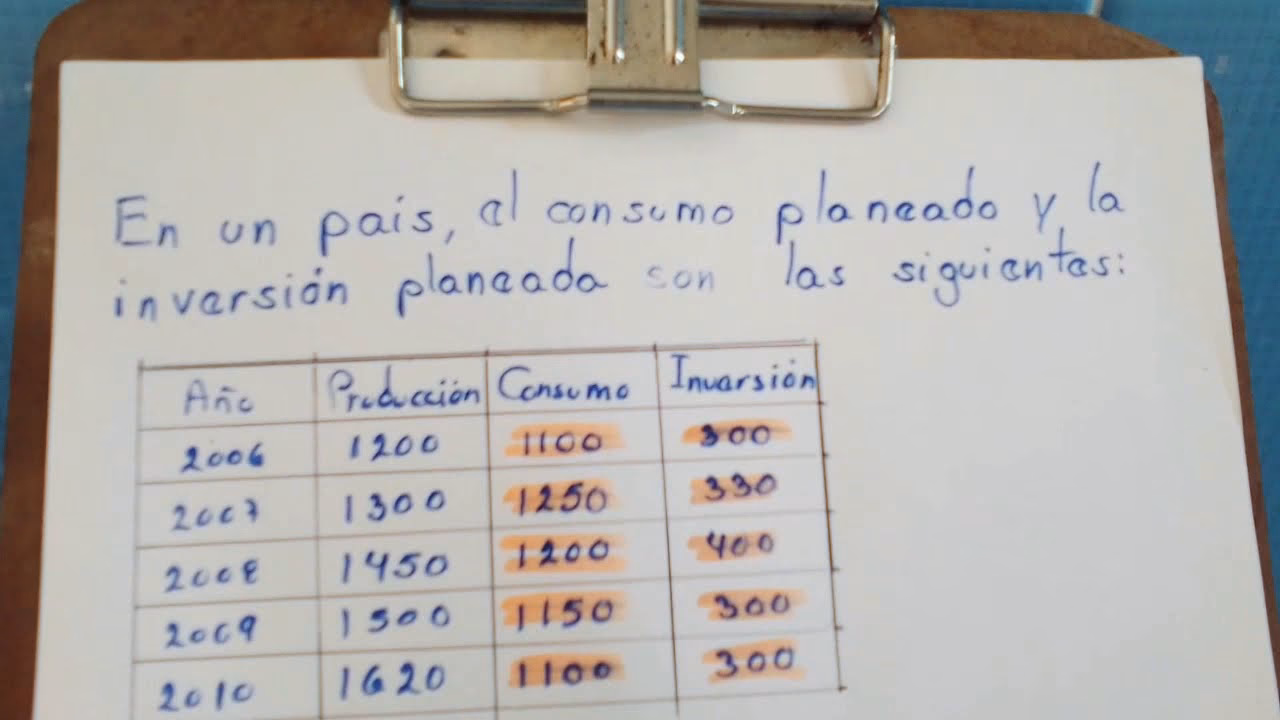 En un país, el consumo planeado y la
inversión planeada son las siguientes:
Año Producción Consumo Inversión
2006 1200 1100 300
2007 1300 1250 330
2008 1450 1200 400
2009 1500 1150 300
2010 1620 1100 300